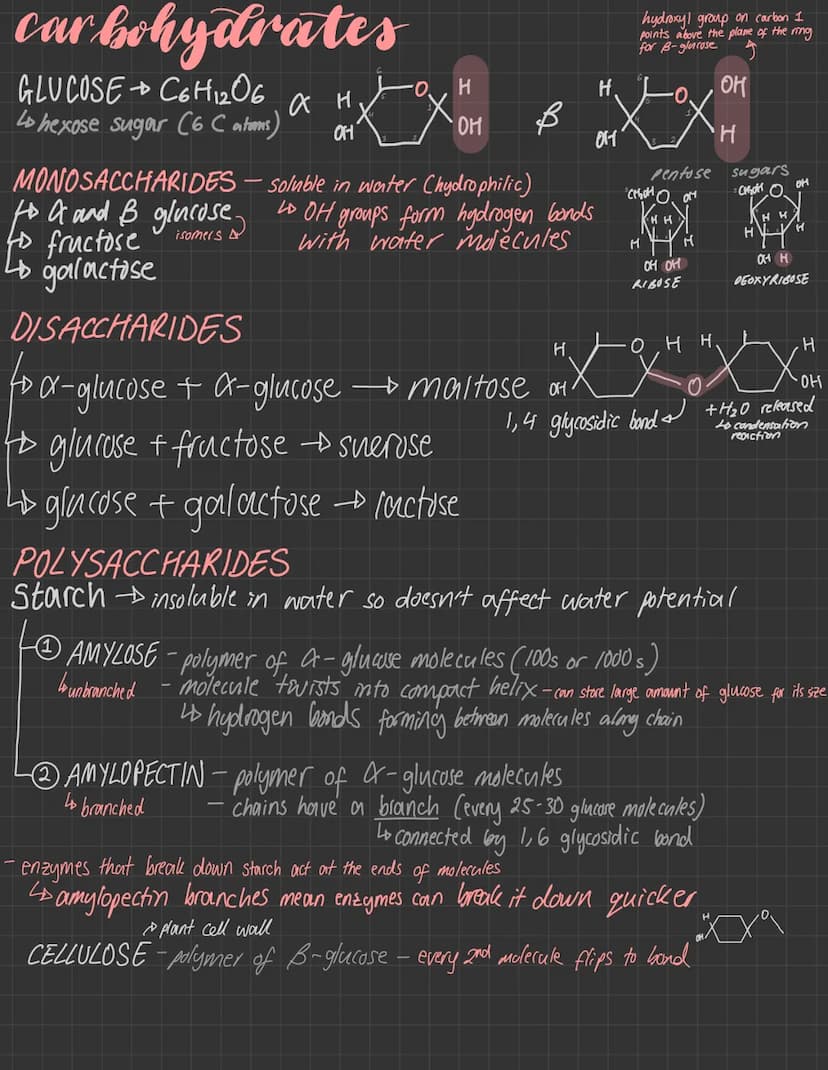 carbohydrates
hydroxyl group on carbon 1
points above the plane of the ring
for β-glucose
GLUCOSE → C6H12O6
↳ hexose sugar (6 C atoms)
α
H
OH
O
H
OH
6
5
4
3
2
1
β
H
OH
O
OH
H
6
5
4
3
2
1
MONOSACCHARIDES – soluble in water (hydrophilic)
↳ α and β glucose
isomers
↳ fructose
↳ galactose
↳ OH groups form hydrogen bonds
with water molecules
pentose sugars
CH2OH O OH
H H
H H
OH OH
RIBOSE
CH2OH O OH
H H
H H
OH H
DEOXYRIBOSE
DISACCHARIDES
→ α-glucose + α-glucose → maltose
→ glucose + fructose → sucrose
→ glucose + galactose → lactose
H O H H H
OH O OH
1,4 glycosidic bond
+ H2O released
↳ condensation
reaction
POLYSACCHARIDES
Starch → insoluble in water so doesn't affect water potential
① AMYLOSE – polymer of α-glucose molecules (100s or 1000s)
↳ unbranched – molecule twists into compact helix – can store large amount of glucose for its size
↳ hydrogen bonds forming between molecules along chain
② AMYLOPECTIN – polymer of α-glucose molecules
↳ branched – chains have a branch (every 25-30 glucose molecules)
↳ connected by 1,6 glycosidic bond
– enzymes that break down starch act at the ends of molecules
↳ amylopectin branches mean enzymes can break it down quicker
→ plant cell wall
CELLULOSE – polymer of β-glucose – every 2nd molecule flips to bond
H
OH
O